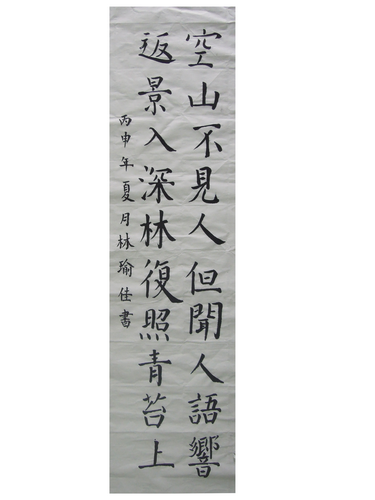 空山不見人但聞人語響
返景入深林復照青苔上
丙申年夏月林瑜佳書